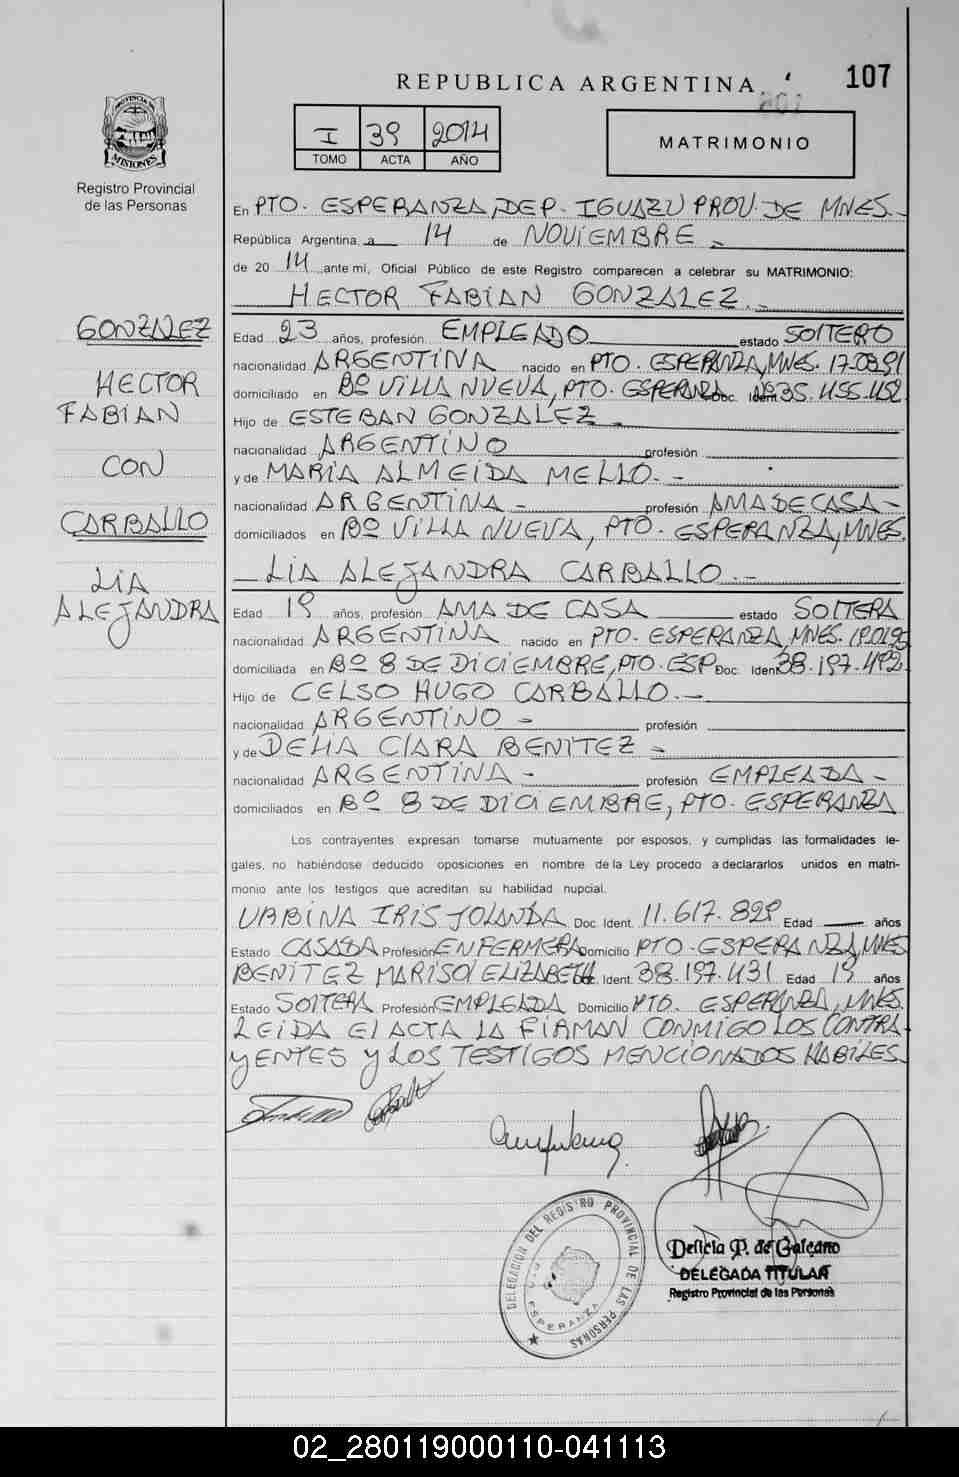 REPUBLICA ARGENTINA
107
PROVINCIA DE MISIONES
Registro Provincial
de las Personas
I 39 2014
TOMO ACTA AÑO
MATRIMONIO
En PTO. ESPERANZA, DEP. IGUAZU PROV. DE MNES.-
República Argentina, a 14 de NOVIEMBRE -
de 20 14 ante mí, Oficial Público de este Registro comparecen a celebrar su MATRIMONIO:
HECTOR FABIAN GONZALEZ.-
GONZALEZ
HECTOR
FABIAN
CON
CARBALLO
LIA
ALEJANDRA
Edad 23 años, profesión EMPLEADO estado SOLTERO
nacionalidad ARGENTINA nacido en PTO. ESPERANZA, MNES. 17.08.91
domiciliado en Bº VILLA NUEVA, PTO. ESPERANZA Doc. Ident. Nº 35.455.452
Hijo de ESTEBAN GONZALEZ -
nacionalidad ARGENTINO profesión
y de MARIA ALMEIDA MELLO.-
nacionalidad ARGENTINA - profesión AMA DE CASA -
domiciliados en Bº VILLA NUEVA, PTO. ESPERANZA, MNES.
LIA ALEJANDRA CARBALLO.-
Edad 19 años, profesión AMA DE CASA estado SOLTERA
nacionalidad ARGENTINA nacido en PTO. ESPERANZA, MNES. 19.01.95
domiciliada en Bº 8 DE DICIEMBRE, PTO. ESP. Doc. Ident. 38.197.492
Hijo de CELSO HUGO CARBALLO.-
nacionalidad ARGENTINO - profesión
y de DELIA CLARA BENITEZ -
nacionalidad ARGENTINA - profesión EMPLEADA -
domiciliados en Bº 8 DE DICIEMBRE, PTO. ESPERANZA
Los contrayentes expresan tomarse mutuamente por esposos, y cumplidas las formalidades le-
gales, no habiéndose deducido oposiciones en nombre de la Ley procedo a declararlos unidos en matri-
monio ante los testigos que acreditan su habilidad nupcial.
URBINA IRIS JOLANDA Doc. Ident. 11.617.829 Edad años
Estado CASADA Profesión ENFERMERA Domicilio PTO. ESPERANZA, MNES
BENITEZ MARISOL ELIZABETH Ident. 38.197.431 Edad 19 años
Estado SOLTERA Profesión EMPLEADA Domicilio PTO. ESPERANZA, MNES.
LEIDA EL ACTA LA FIRMAN CONMIGO LOS CONTRA-
YENTES Y LOS TESTIGOS MENCIONADOS HABILES.
DELEGACION DEL REGISTRO PROVINCIAL DE LAS PERSONAS
ESPERANZA
Delicia P. de Galeano
DELEGADA TITULAR
Registro Provincial de las Personas
02_280119000110-041113